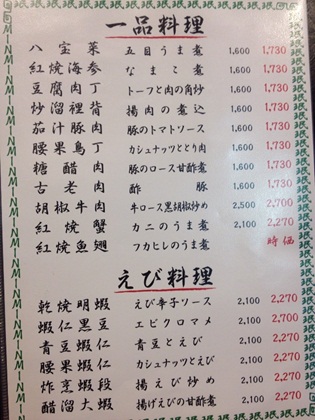 一品料理
八宝菜 五目うま煮 1,600 1,730
紅焼海参 なまこ煮 1,600 1,730
豆腐肉丁 トーフと肉の角炒 1,600 1,730
炒溜裡背 揚肉の煮込 1,600 1,730
茄汁豚肉 豚のトマトソース 1,600 1,730
腰果鳥丁 カシュナッツととり肉 1,600 1,730
糖醋肉 豚のロース甘酢煮 1,600 1,730
古老肉 酢豚 1,600 1,730
胡椒牛肉 牛ロース黒胡椒炒め 2,500 2,700
紅焼蟹 カニのうま煮 2,100 2,270
紅焼魚翅 フカヒレのうま煮 時価
えび料理
乾焼明蝦 えび辛子ソース 2,100 2,270
蝦仁黒豆 エビクロマメ 2,100 2,270
青豆蝦仁 青豆とえび 2,100 2,270
腰果蝦仁 カシュナッツとえび 2,100 2,270
炸烹蝦段 揚えび炒め 2,100 2,270
醋溜大蝦 揚げえびの甘酢煮 2,100 2,270